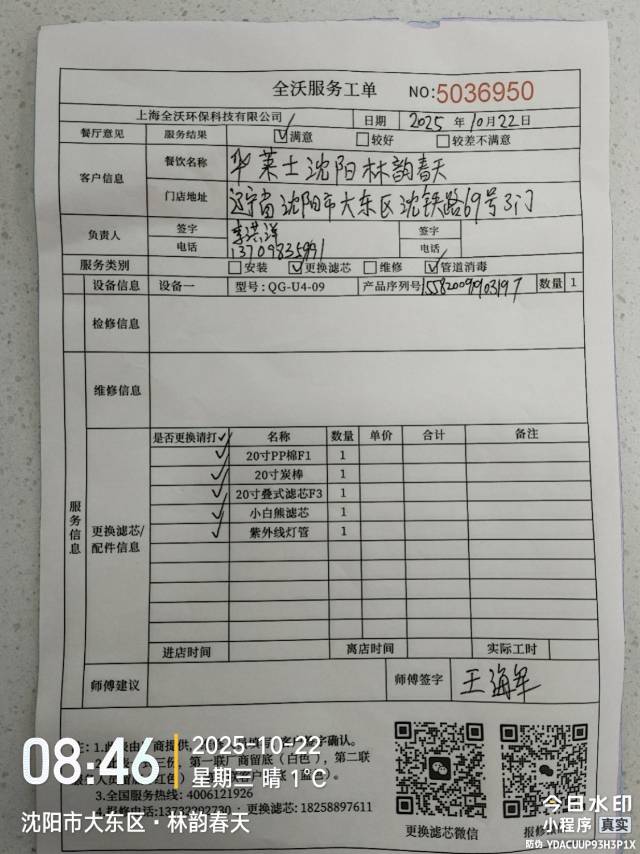 全沃服务工单 NO:5036950
上海全沃环保科技有限公司 日期 2025年10月22日
餐厅意见 服务结果 ☑满意 □较好 □较差不满意
客户信息 餐饮名称 华莱士沈阳林韵春天
门店地址 辽宁省沈阳市大东区沈铁路69号3门
负责人 签字 李洪洋 签字
电话 13709835991 电话
服务类别 □安装 ☑更换滤芯 □维修 ☑管道消毒
设备信息 设备一 型号:QG-U4-09 产品序列号 数量 1
检修信息
维修信息
服务信息
更换滤芯/配件信息
是否更换请打✓ 名称 数量 单价 合计 备注
✓ 20寸PP棉F1 1
✓ 20寸炭棒 1
✓ 20寸叠式滤芯F3 1
✓ 小白熊滤芯 1
✓ 紫外线灯管 1
进店时间 离店时间 实际工时
师傅建议 师傅签字 王海军
字确认。
第一联厂商留底(白色),第二联
3.全国服务热线: 4006121926
4.报修电话:13732202730 · 更换滤芯: 18258897611
更换滤芯微信
08:46 2025-10-22
星期三 晴 1℃
沈阳市大东区·林韵春天
今日水印
小程序 真实
防伪 YDACUUP93H3P1X